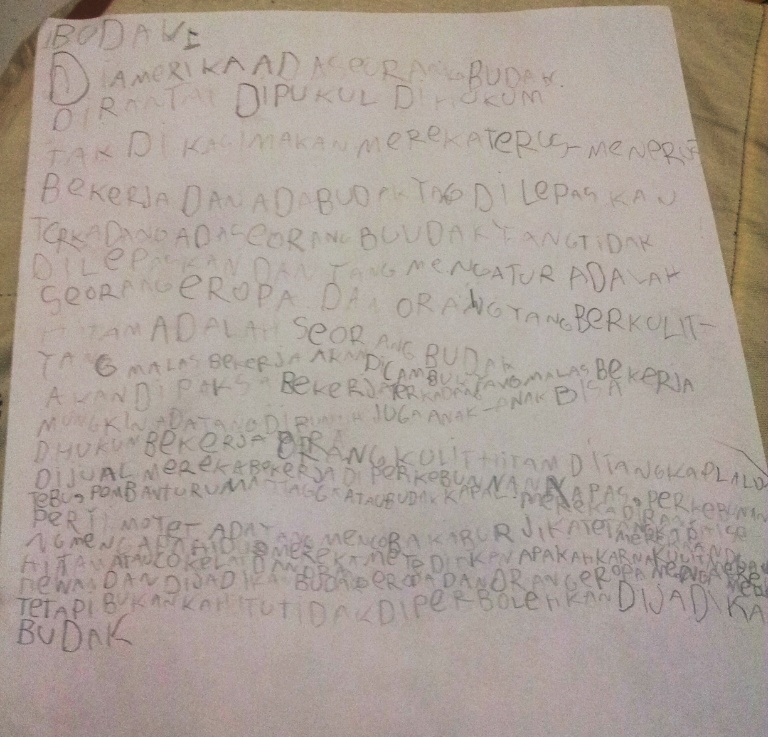 BUDAK
DIAMERIKA ADA SEORANG BUDAK.
DIRANTAI DIPUKUL DIHUKUM
TAK DI KASIMAKAN MEREKA TERUS-MENERUS
BEKERJA DAN ADA BUDAK DI LEPASKAN
TERKADANG ADA SEORANG BUUDAK YANG TIDAK
DILEPASKAN DAN YANG MENGATUR ADALAH
SEORANG EROPA DAN ORANG YANG BERKULIT-
HITAM ADALAH SEORANG BUDAK
YANG MALAS BEKERJA AKAN DICAMBUK YANG MALAS BEKERJA
AKAN DIPAKSA BEKERJA TERKADANG ANAK-ANAK BISA
MUNGKIN ADA YANG JUGA ANAK-ANAK
DIHUKUM BEKERJA ORANG KULIT HITAM DITANGKAP LALU
DIJUAL MEREKA BEKERJA DI PERKEBUNNAN KAPAS, PERKEBUNAN
TEBU, PEMBANTU RUMAH TAGGA ATAU BUDAK KAPAL. MEREKA
ADA YANG MENCOBA KABUR JIKA
MENGAPA HIDUP MEREKA APAKAH KARNA KULIT
HITAM ATAU COKELAT DAN ORANG EROPA
HEWAN DAN DIJADIKAN BUDAK EROPA DAN ORANG EROPA
TETAPI BUKANKAH ITU TIDAK DIPERBOLEHKAN DIJADIKA
BUDAK